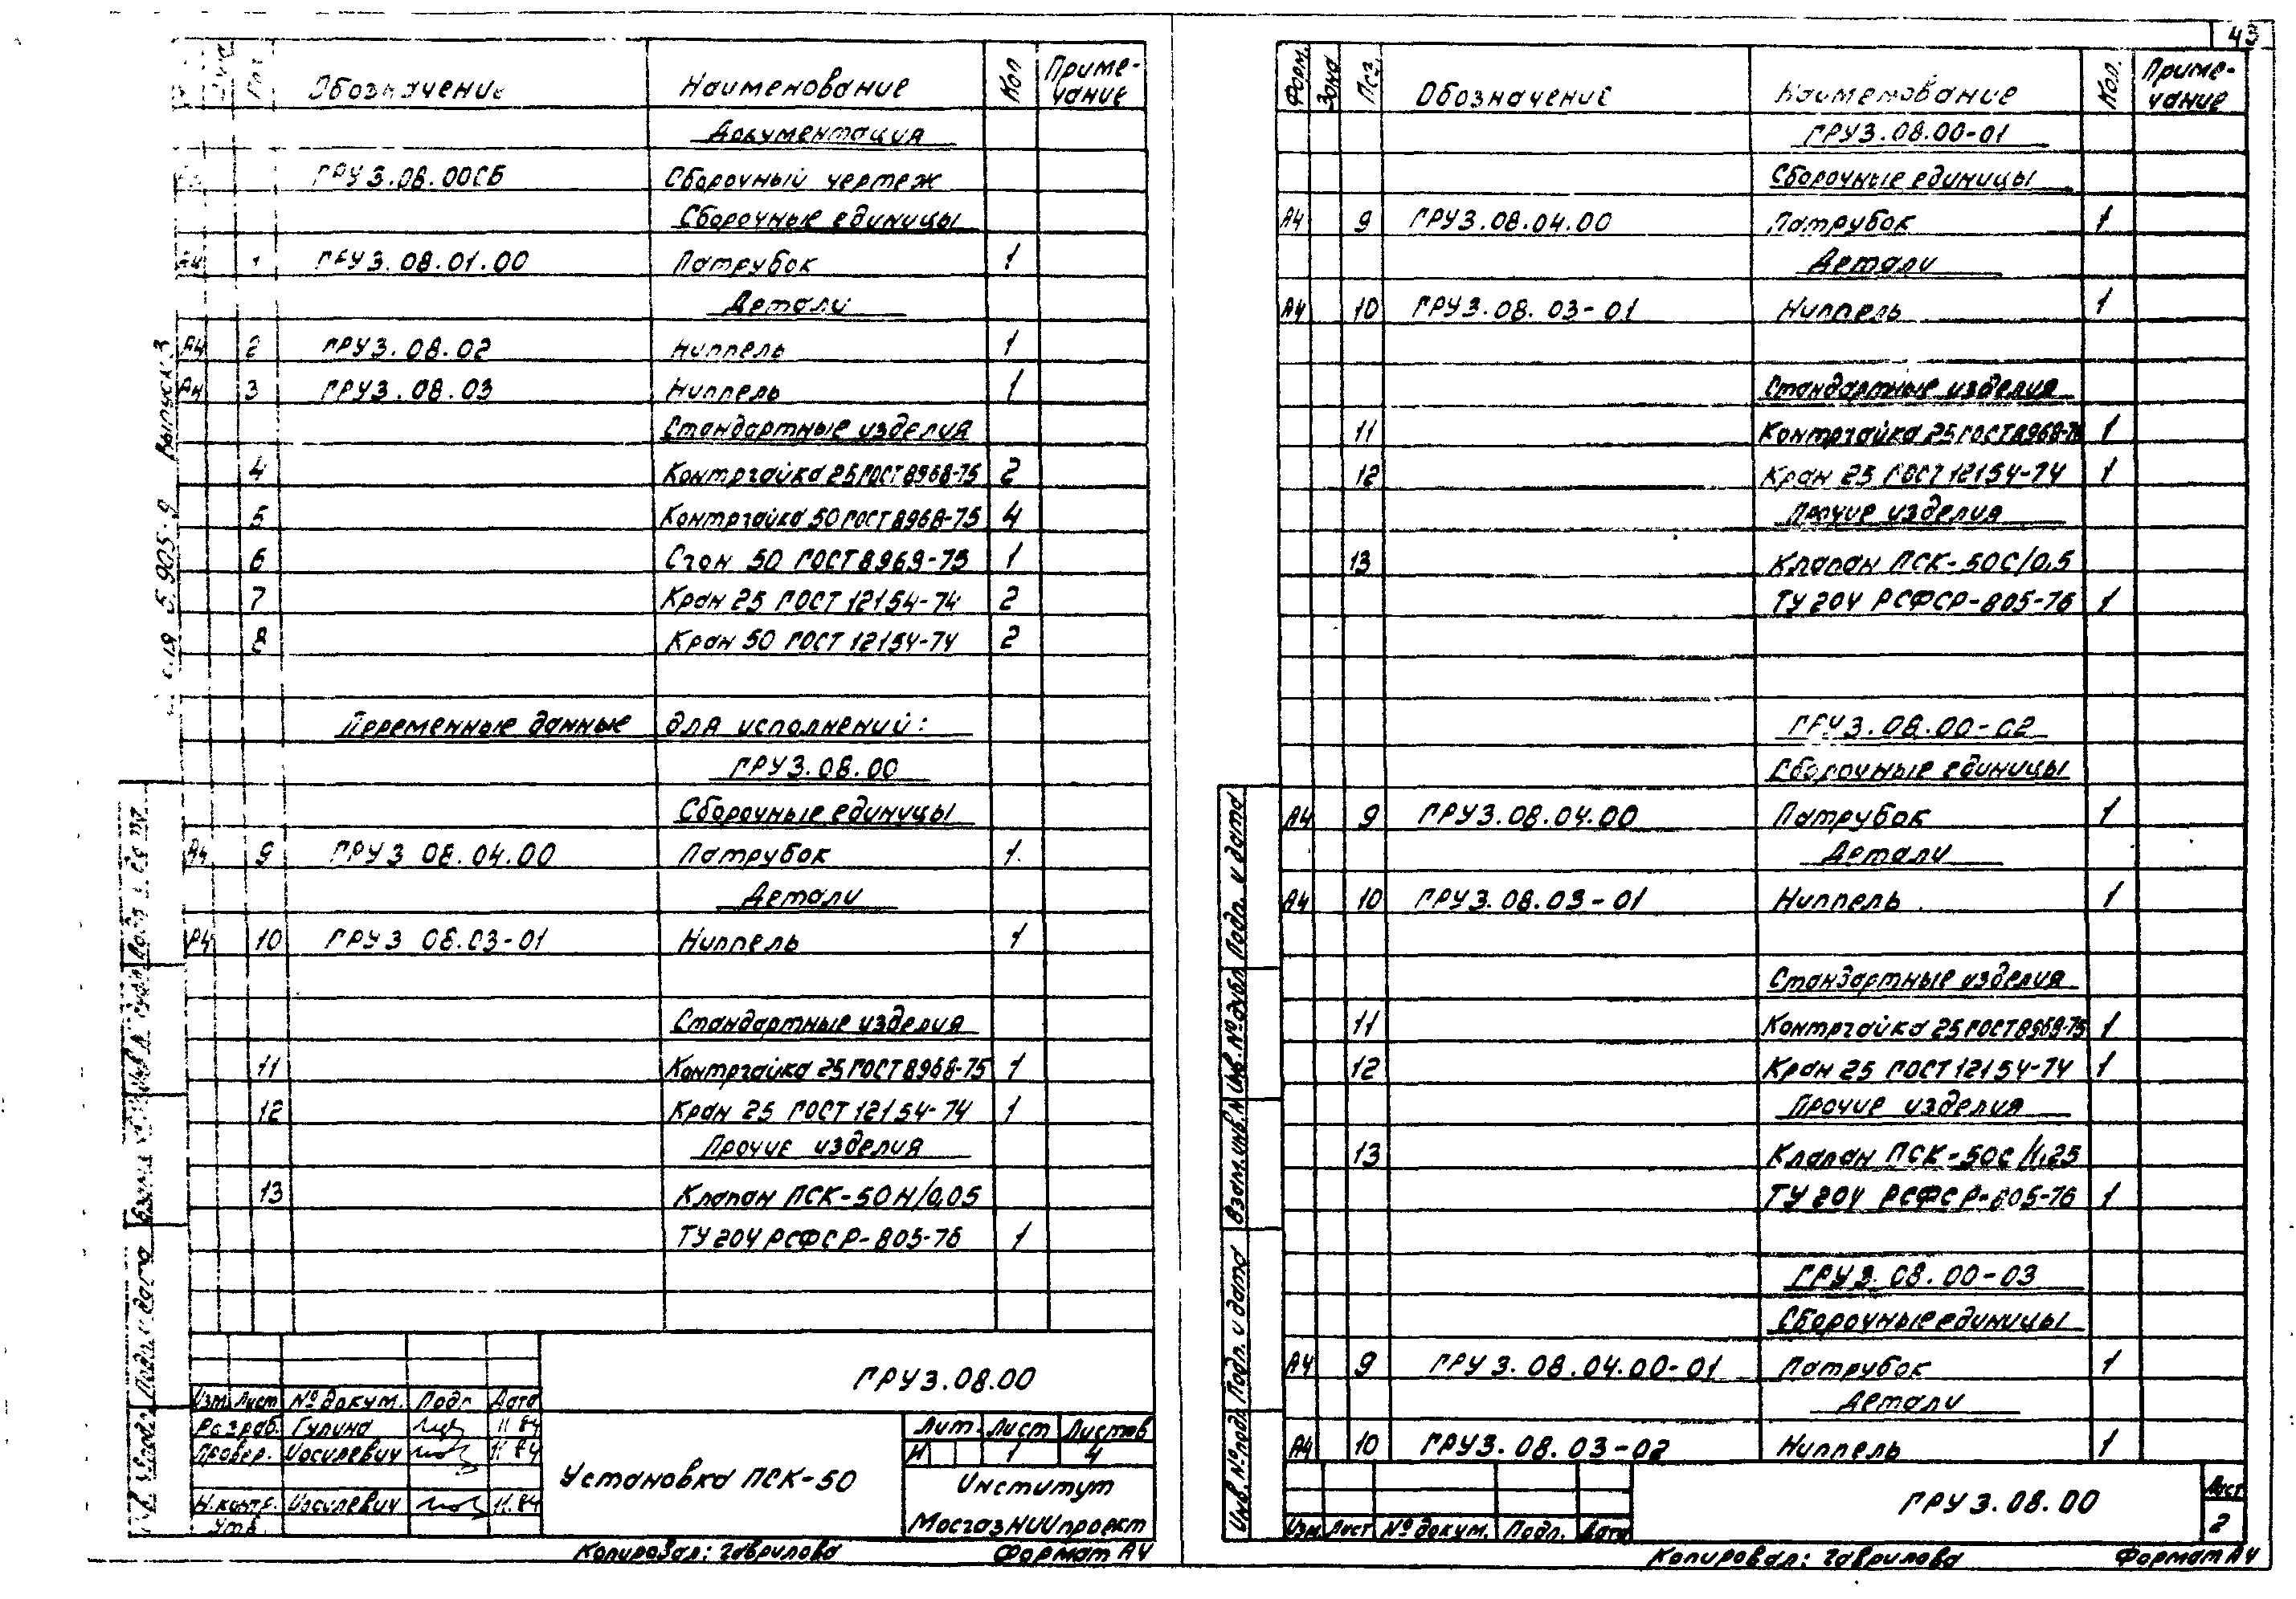 43
Обозначение Наименование Кол Приме-чание
Документация
ГРУ3.08.00СБ Сборочный чертеж
Сборочные единицы
А4 1 ГРУ3.08.01.00 Патрубок 1
Детали
А4 2 ГРУ3.08.02 Ниппель 1
А4 3 ГРУ3.08.03 Ниппель 1
Стандартные изделия
4 Контргайка 25 ГОСТ 8968-75 2
5 Контргайка 50 ГОСТ 8968-75 4
6 Сгон 50 ГОСТ 8969-75 1
7 Кран 25 ГОСТ 12154-74 2
8 Кран 50 ГОСТ 12154-74 2
Переменные данные для исполнений:
ГРУ3.08.00
Сборочные единицы
А4 9 ГРУ3 08.04.00 Патрубок 1
Детали
А4 10 ГРУ3 08.03-01 Ниппель 1
Стандартные изделия
11 Контргайка 25 ГОСТ 8968-75 1
12 Кран 25 ГОСТ 12154-74 1
Прочие изделия
13 Клапан ПСК-50Н/0,05
ТУ 204 РСФСР-805-76 1
ГРУ3.08.00
Изм. Лист № докум. Подп. Дата
Разраб. Гулина 11.84
Провер. Иосилевич 11.84
Н.контр. Иосилевич 11.84
Утв.
Установка ПСК-50
Лит. Лист Листов
И 1 4
Институт
МосгазНИИпроект
Копировал: Гаврилова Формат А4
5.905-9 Выпуск 3
Подп. и дата
Форм. Зона Поз. Обозначение Наименование Кол. Приме-чание
ГРУ3.08.00-01
Сборочные единицы
А4 9 ГРУ3.08.04.00 Патрубок 1
Детали
А4 10 ГРУ3.08.03-01 Ниппель 1
Стандартные изделия
11 Контргайка 25 ГОСТ 8968-75 1
12 Кран 25 ГОСТ 12154-74 1
Прочие изделия
13 Клапан ПСК-50С/0,5
ТУ 204 РСФСР-805-76 1
ГРУ3.08.00-02
Сборочные единицы
А4 9 ГРУ3.08.04.00 Патрубок 1
Детали
А4 10 ГРУ3.08.03-01 Ниппель 1
Стандартные изделия
11 Контргайка 25 ГОСТ 8968-75 1
12 Кран 25 ГОСТ 12154-74 1
Прочие изделия
13 Клапан ПСК-50С/1,25
ТУ 204 РСФСР-805-76 1
ГРУ3.08.00-03
Сборочные единицы
А4 9 ГРУ3.08.04.00-01 Патрубок 1
Детали
А4 10 ГРУ3.08.03-02 Ниппель 1
Изм. Лист № докум. Подп. Дата
ГРУ3.08.00
Лист
2
Копировал: Гаврилова Формат А4
Инв. № подл. Подп. и дата Взам. инв. № Инв. № дубл. Подп. и дата